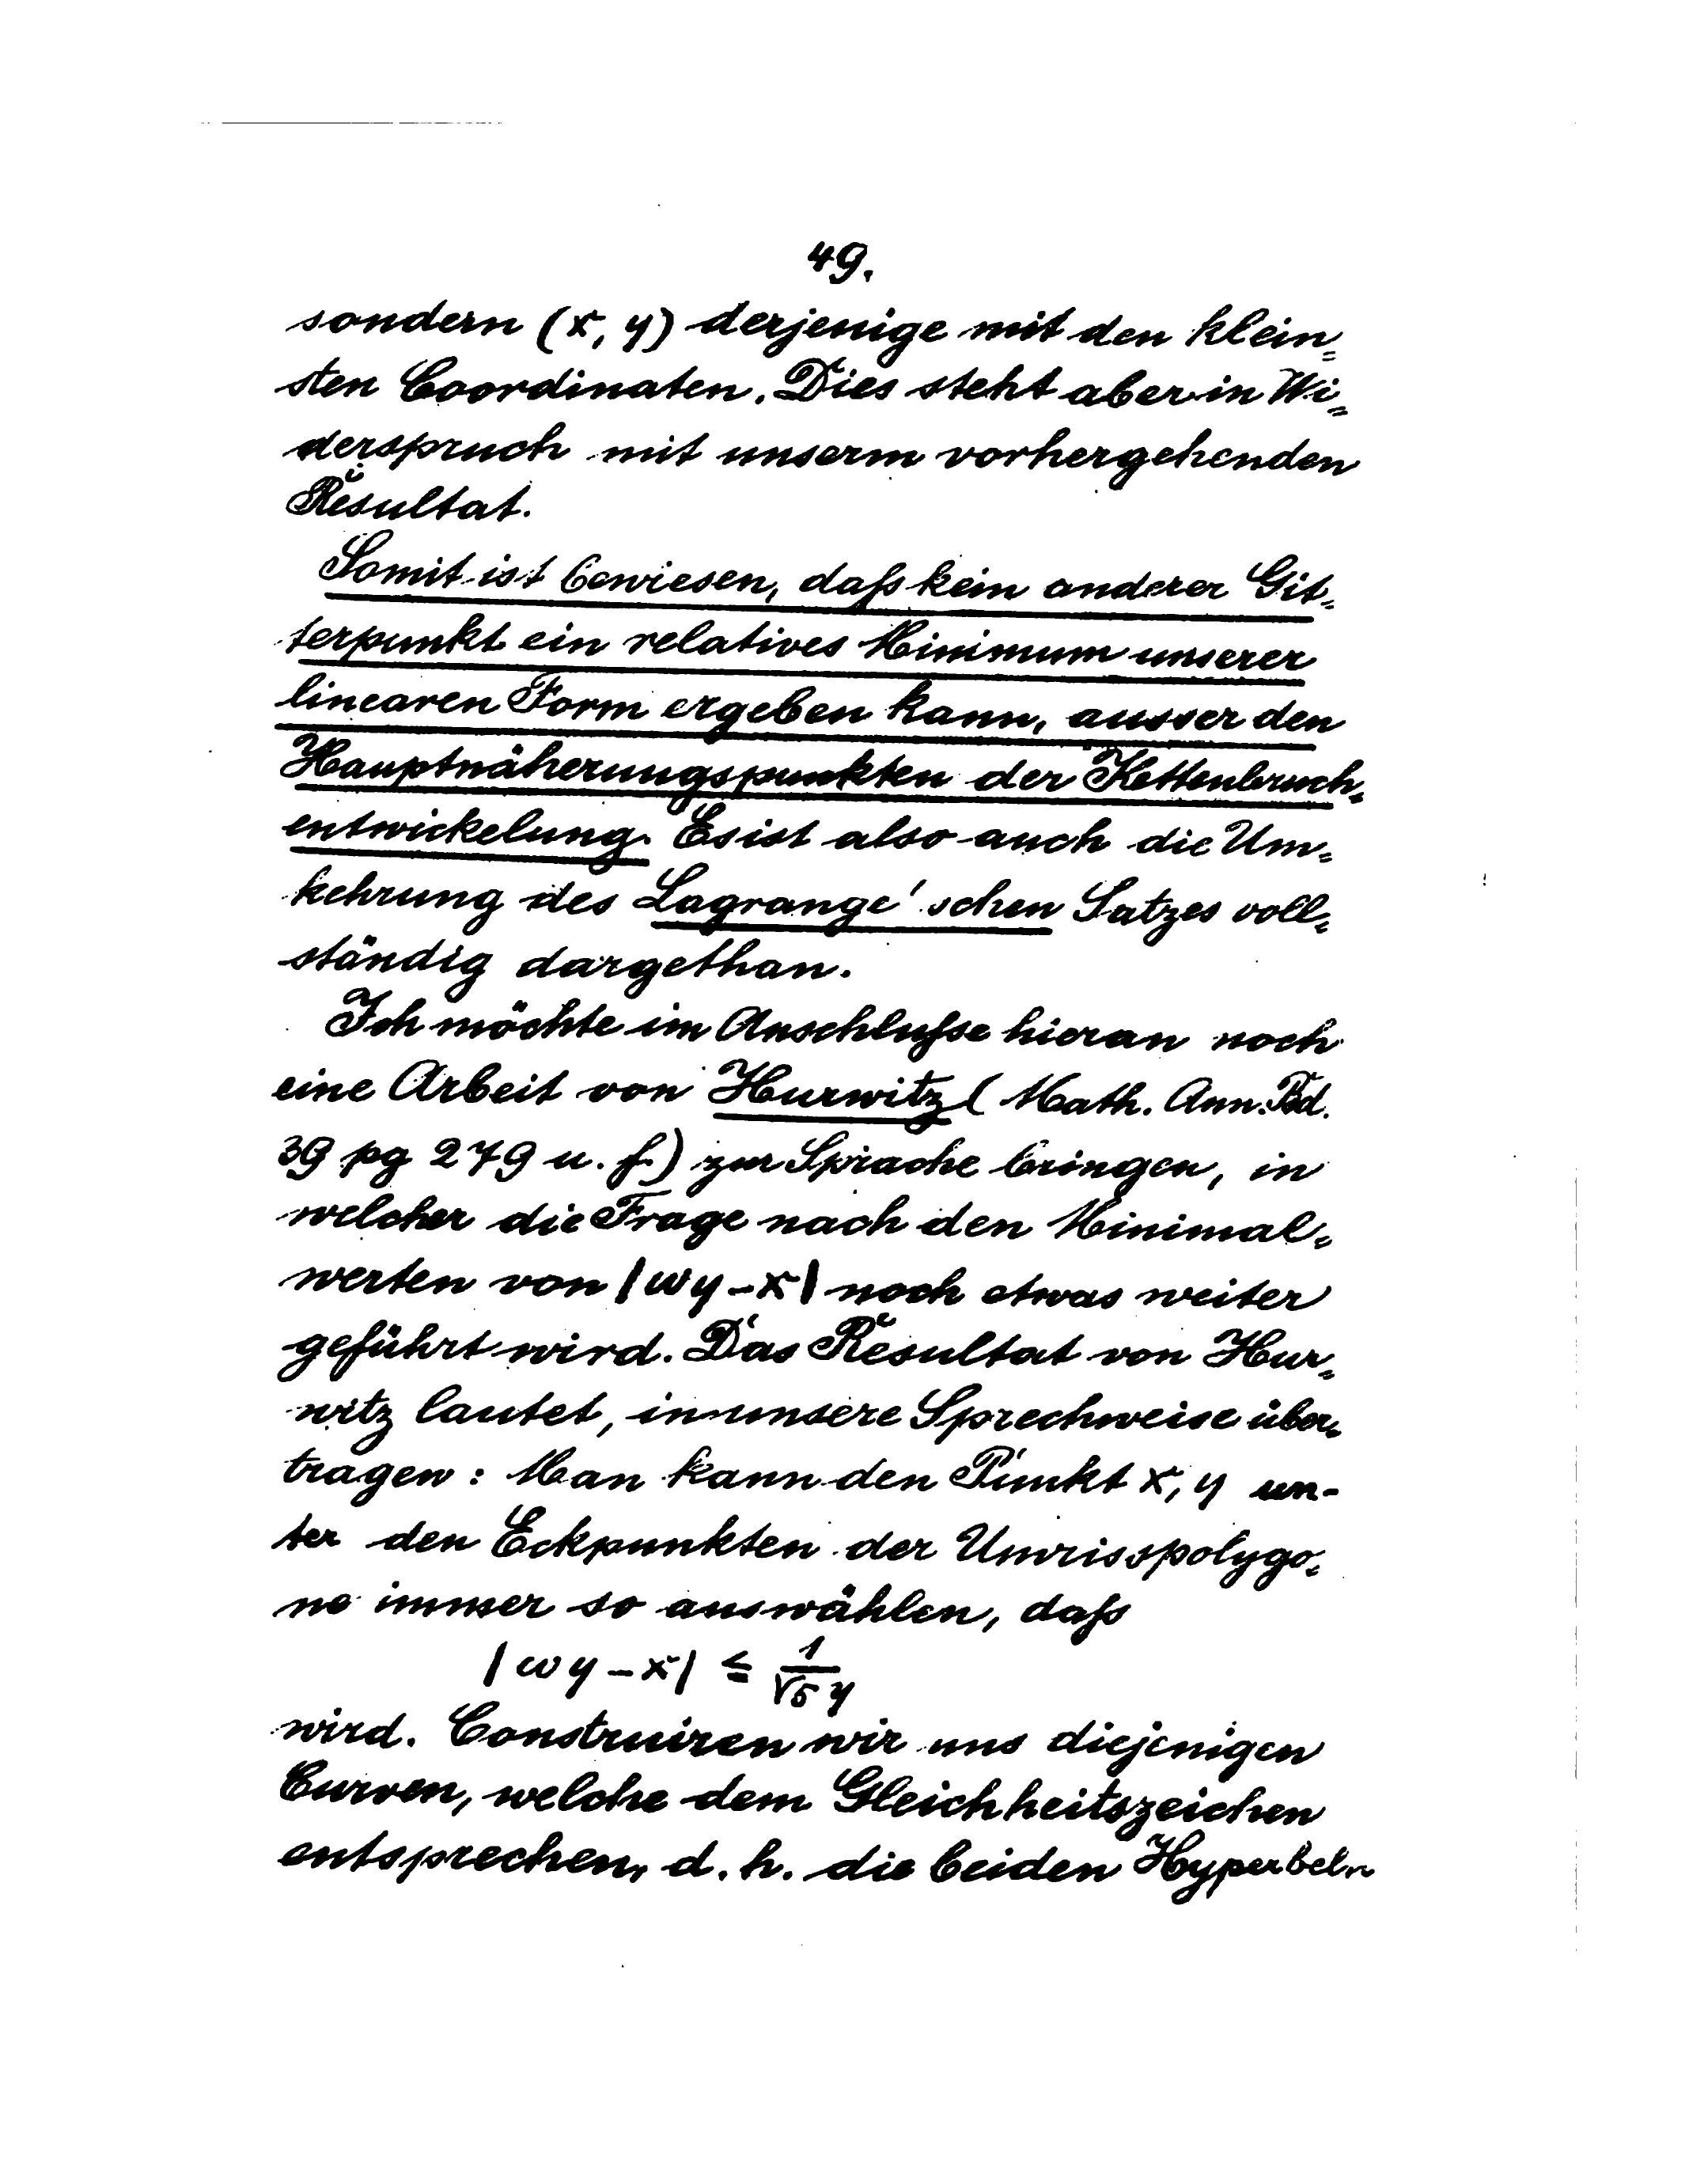 49.
sondern (x, y) derjenige mit den klein=
sten Coordinaten. Dies steht aber in Wi=
derspruch mit unserm vorhergehenden
Resultat.
Somit ist bewiesen, daſs kein anderer Git=
terpunkt ein relatives Minimum unserer
linearen Form ergeben kann, ausser den
Hauptnäherungspunkten der Kettenbruch=
entwickelung. Es ist also auch die Um=
kehrung des Lagrange'schen Satzes voll=
ständig dargethan.
Ich möchte im Anschluſse hieran noch
eine Arbeit von Hurwitz (Math. Ann. Bd.
39 pg 279 u. f.) zur Sprache bringen, in
welcher die Frage nach den Minimal=
werten von |ωy-x| noch etwas weiter
geführt wird. Das Resultat von Hur=
witz lautet, in unsere Sprechweise über=
tragen: Man kann den Punkt x, y un-
ter den Eckpunkten der Umrisspolygo=
ne immer so auswählen, daſs
|ωy-x| ≦ 1/(√5 y)
wird. Construiren wir uns diejenigen
Curven, welche dem Gleichheitszeichen
entsprechen, d. h. die beiden Hyperbeln